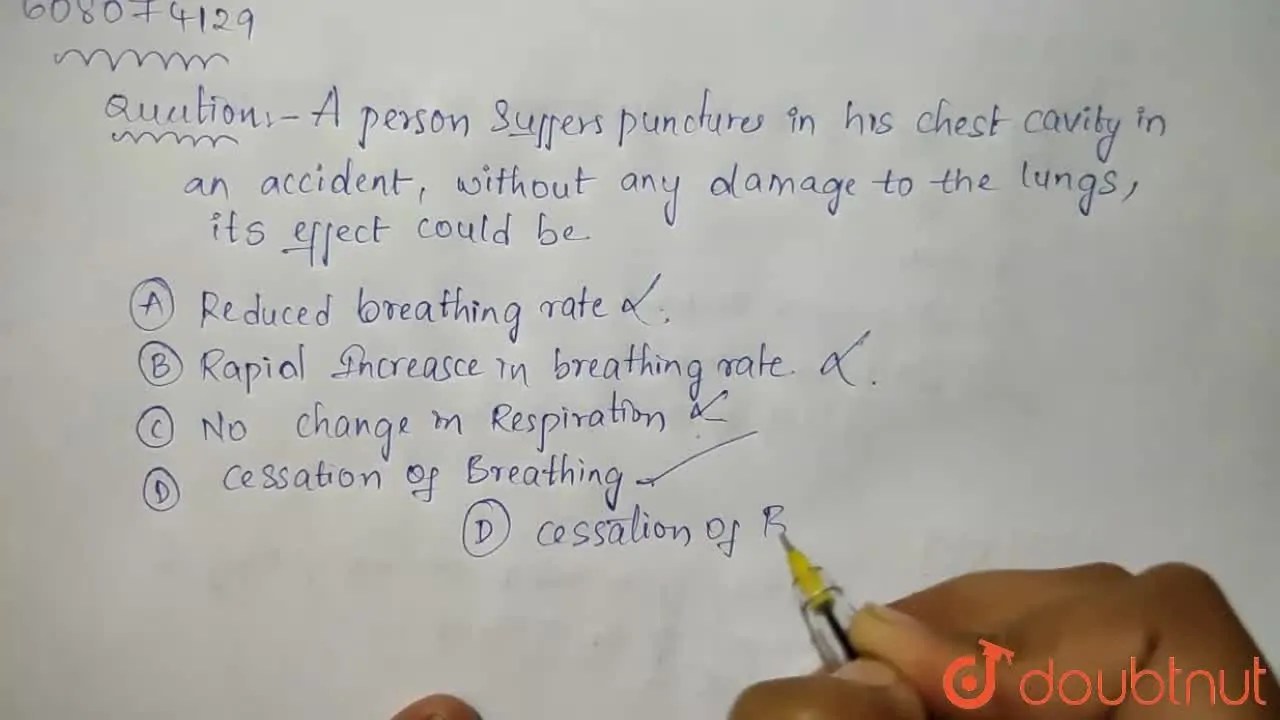 608074129
Quution:- A person Suffers punctures in his chest cavity in
an accident, without any damage to the lungs,
its effect could be
A Reduced breathing rate
B Rapid Increasce in breathing rate.
C No change in Respiration
D cessation of Breathing
D cessation of B
doubtnut